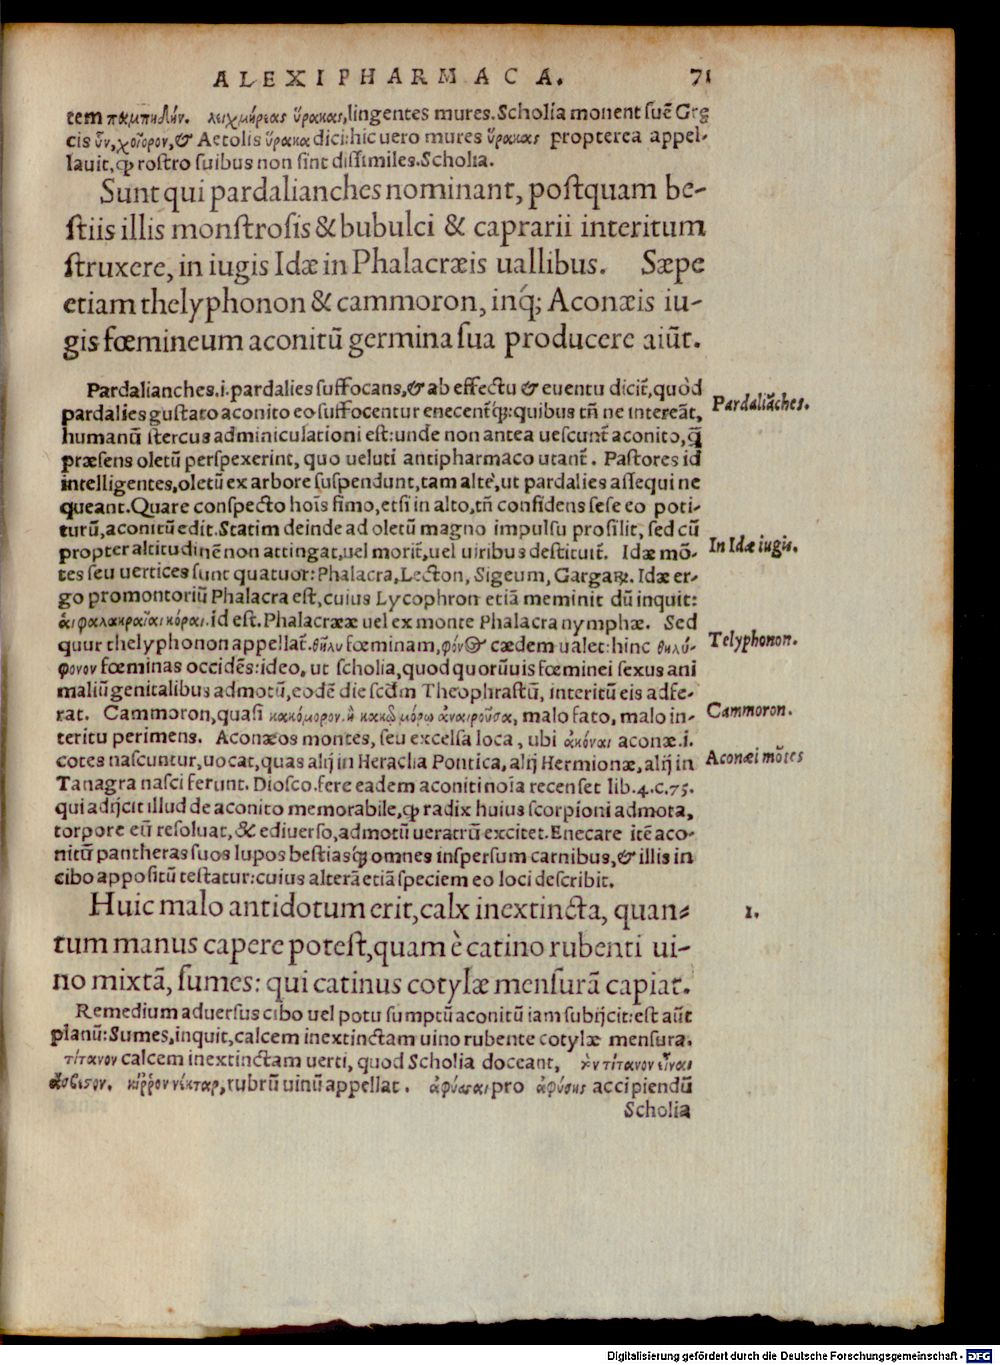 ALEXIPHARMACA. 71
tem παμπήδην. λειχμήρεας ὕρακας, lingentes mures. Scholia monent suẽ Gręcis
cis ὗν, χοῖρον, & Aetolis ὕρακα dici: hic uero mures ὕρακας propterea appel-
lauit, ꝙ rostro suibus non sint dissimiles. Scholia.
Sunt qui pardalianches nominant, postquam be-
stiis illis monstrosis & bubulci & caprarii interitum
struxere, in iugis Idæ in Phalacræis uallibus. Sæpe
etiam thelyphonon & cammoron, inq́; Aconæis iu-
gis fœmineum aconitũ germina sua producere aiũt.
Pardalianches.i. pardalies suffocans, & ab effectu & euentu dicit̃, quòd
pardalies gustato aconito eo suffocentur enecent̃q́;: quibus tñ ne intereãt,
humanũ stercus adminiculationi est: unde non antea uescunt̃ aconito, q̃
præsens oletũ perspexerint, quo ueluti antipharmaco utant̃. Pastores id
intelligentes, oletũ ex arbore suspendunt, tam altè, ut pardalies assequi ne
queant. Quare conspecto hoĩs fimo, etsi in alto, tñ confidens sese eo poti-
turũ, aconitũ edit. Statim deinde ad oletũ magno impulsu prosilit, sed cũ
propter altitudinẽ non attingat, uel morit̃, uel uiribus destituit̃. Idæ mõ-
tes seu uertices sunt quatuor: Phalacra, Lecton, Sigeum, Gargaꝝ. Idæ er-
go promontoriũ Phalacra est, cuius Lycophron etiã meminit dũ inquit:
ἁι φαλακραῖαι κόραι. id est. Phalacrææ uel ex monte Phalacra nymphæ. Sed
quur thelyphonon appellat̃. θῆλυ fœminam, φόνος cædem ualet: hinc θηλύ-
φονον fœminas occidẽs: ideo, ut scholia, quod quorũuis fœminei sexus ani
maliũ genitalibus admotũ, eodẽ die scđm Theophrastũ, interitũ eis adfe-
rat. Cammoron, quasi κακόμορον. ἢ κακῷ μόρῳ ἀναιροῦσα, malo fato, malo in-
teritu perimens. Aconæos montes, seu excelsa loca, ubi ἀκόναι aconæ.i.
cotes nascuntur, uocat, quas alij in Heraclia Pontica, alij Hermionæ, alij in
Tanagra nasci ferunt. Diosco. fere eadem aconiti noĩa recenset lib.4.c.75.
qui adijcit illud de aconito memorabile, ꝙ radix huius scorpioni admota,
torpore eũ resoluat, & ediuerso, admotũ ueratrũ excitet. Enecare itẽ aco-
nitũ pantheras suos lupos bestiasq́; omnes inspersum carnibus, & illis in
cibo appositũ testatur: cuius alterã etiã speciem eo loci describit.
Huic malo antidotum erit, calx inextincta, quan-
tum manus capere potest, quam è catino rubenti ui-
no mixtã, sumes: qui catinus cotylæ mensurã capiat.
Remedium aduersus cibo uel potu sumptũ aconitũ iam subijcit: est aũt
planũ: Sumes, inquit, calcem inextinctam uino rubente cotylæ mensura.
τίτανον calcem inextinctam uerti, quod Scholia doceant, τὴν τίτανον εἶναι
ἄσβεστον. κιῤῥὸν νέκταρ, rubrũ uinũ appellat. ἀφύσσαι pro ἀφύσῃς accipiendũ
Scholia
Pardaliãches.
In Idæ iugis.
Telyphonon.
Cammoron.
Aconæi mõtes
1.
Digitalisierung gefördert durch die Deutsche Forschungsgemeinschaft - DFG